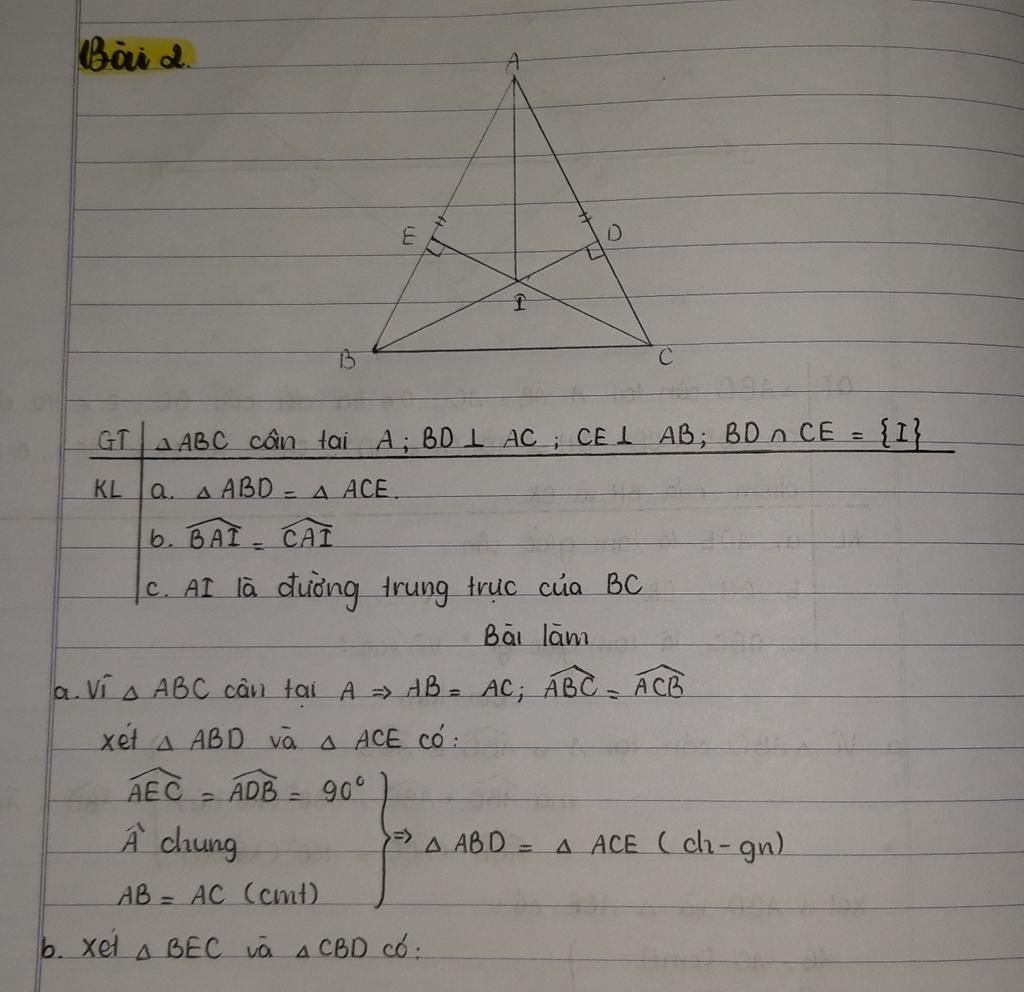 Bài 2.
A
E
D
I
B
C
GT ∆ABC cân tại A; BD ⊥ AC; CE ⊥ AB; BD ∩ CE = {I}
KL a. ∆ ABD = ∆ ACE.
b. \widehat{BAI} = \widehat{CAI}
c. AI là đường trung trực của BC
Bài làm
a. Vì ∆ ABC cân tại A ⇒ AB = AC; \widehat{ABC} = \widehat{ACB}
xét ∆ ABD và ∆ ACE có:
\widehat{AEC} = \widehat{ADB} = 90°
Â chung
AB = AC (cmt)
⇒ ∆ ABD = ∆ ACE (ch-gn)
b. xét ∆ BEC và ∆ CBD có: